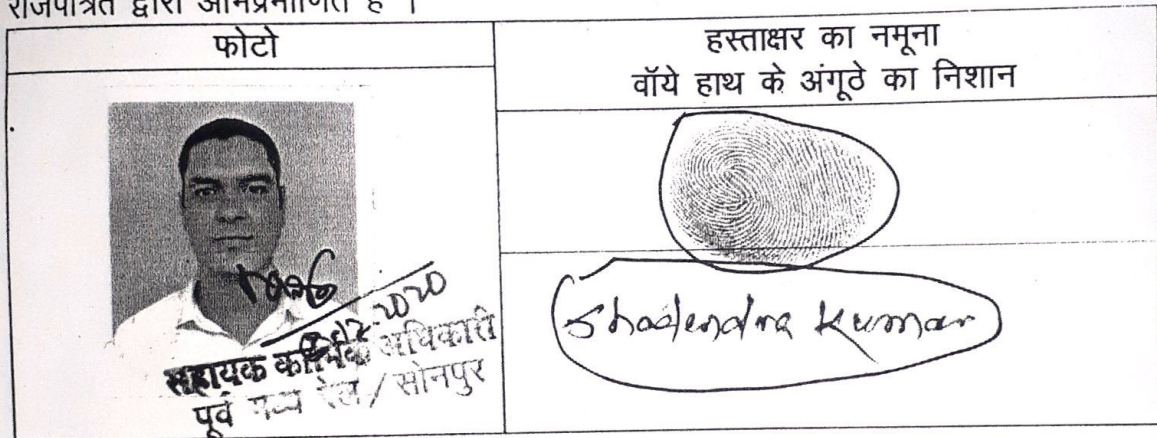 राजपत्रित द्वारा अभिप्रमाणित है ।
फोटो
हस्ताक्षर का नमूना
वॉये हाथ के अंगूठे का निशान
2020
सहायक कार्मिक अधिकारी
पूर्व मध्य रेल / सोनपुर
Kumar